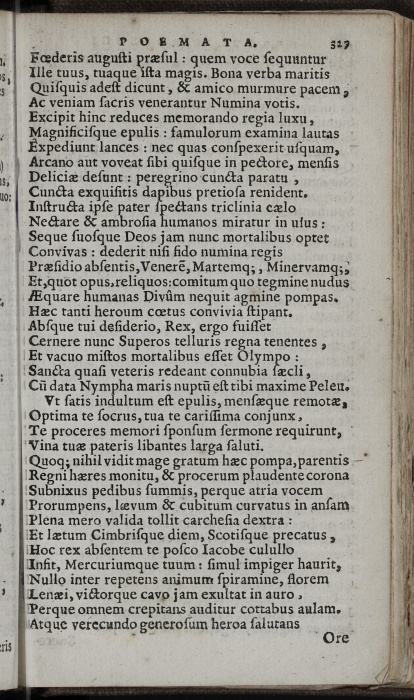 POEMATA. 329
Fœderis augusti præsul : quem voce sequuntur
Ille tuus, tuaque ista magis. Bona verba maritis
Quisquis adest dicunt, & amico murmure pacem,
Ac veniam sacris venerantur Numina votis.
Excipit hinc reduces memorando regia luxu,
Magnificisque epulis : famulorum examina lautas
Expediunt lances : nec quas conspexerit usquam,
Arcano aut voveat sibi quisque in pectore, mensis
Deliciæ desunt : peregrino cuncta paratu,
Cuncta exquisitis dapibus pretiosa renident.
Instructa ipse pater spectans triclinia cælo
Nectare & ambrosia humanos miratur in usus :
Seque suosque Deos jam nunc mortalibus optet
Convivas : dederit nisi fido numina regis
Præsidio absentis, Venerē, Martemq;, Minervamq;,
Et, quot opus, reliquos: comitum quo tegmine nudus
Æquare humanas Divûm nequit agmine pompas.
Hæc tanti heroum cœtus convivia stipant.
Absque tui desiderio, Rex, ergo fuisset
Cernere nunc Superos telluris regna tenentes,
Et vacuo mistos mortalibus esset Olympo :
Sancta quasi veteris redeant connubia sæcli,
Cū data Nympha maris nuptū est tibi maxime Peleu.
Vt satis indultum est epulis, mensæque remotæ,
Optima te socrus, tua te carissima conjunx,
Te proceres memori sponsum sermone requirunt,
Vina tuæ pateris libantes larga saluti.
Quoq; nihil vidit mage gratum hæc pompa, parentis
Regni hæres monitu, & procerum plaudente corona
Subnixus pedibus summis, perque atria vocem
Prorumpens, lævum & cubitum curvatus in ansam
Plena mero valida tollit carchesia dextra :
Et lætum Cimbrisque diem, Scotisque precatus,
Hoc rex absentem te posco Iacobe culullo
Insit, Mercuriumque tuum : simul impiger haurit,
Nullo inter repetens animum spiramine, florem
Lenæi, victorque cavo jam exultat in auro,
Perque omnem crepitans auditur cottabus aulam.
Atque verecundo generosum heroa salutans
Ore